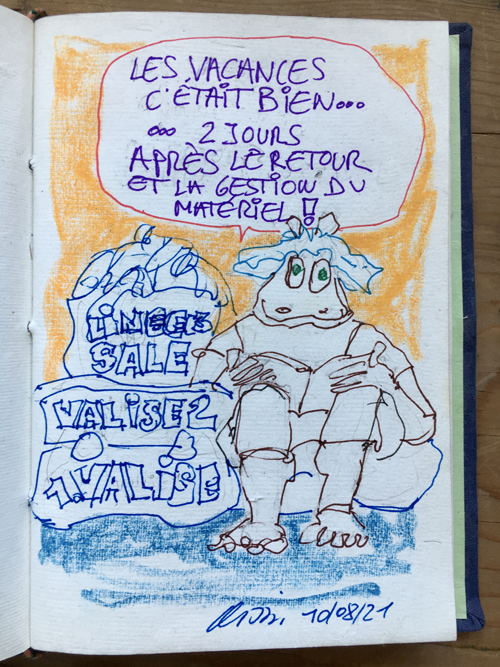 LES VACANCES
C'ÉTAIT BIEN...
... 2 JOURS
APRÈS LE RETOUR
ET LA GESTION DU
MATÉRIEL !
LINGE
SALE
VALISE 2
1.VALISE
10/08/21